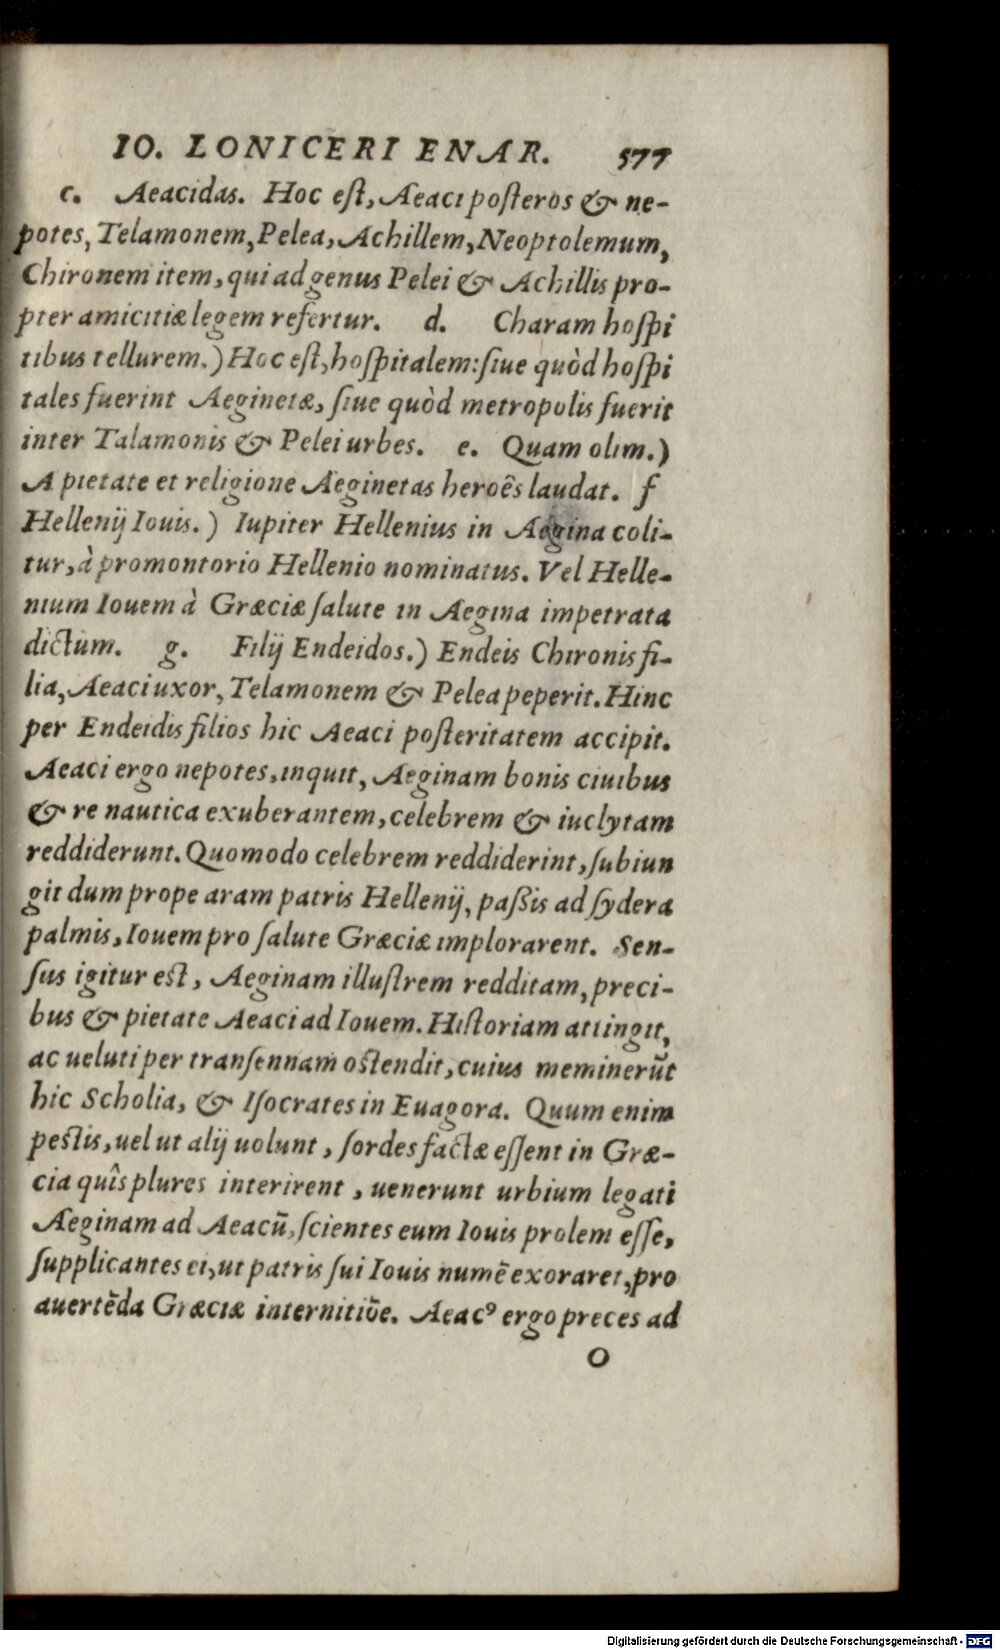 IO. LONICERI ENAR. 577
c. Aeacidas. Hoc eſt, Aeaci poſteros & ne-
potes, Telamonem, Pelea, Achillem, Neoptolemum,
Chironem item, qui ad genus Pelei & Achillis pro-
pter amicitiæ legem refertur. d. Charam hoſpi
tibus tellurem.) Hoc eſt, hoſpitalem: ſiue quòd hoſpi
tales fuerint Aeginetæ, ſiue quòd metropolis fuerit
inter Talamonis & Pelei urbes. e. Quam olim.)
A pietate et religione Aeginetas heroês laudat. f
Hellenij Iouis.) Iupiter Hellenius in Aegina coli-
tur, à promontorio Hellenio nominatus. Vel Helle-
nium Iouem à Græciæ ſalute in Aegina impetrata
dictum. g. Filij Endeidos.) Endeis Chironis fi-
lia, Aeaci uxor, Telamonem & Pelea peperit. Hinc
per Endeidis filios hic Aeaci poſteritatem accipit.
Aeaci ergo nepotes, inquit, Aeginam bonis ciuibus
& re nautica exuberantem, celebrem & iuclytam
reddiderunt. Quomodo celebrem reddiderint, ſubiun
git dum prope aram patris Hellenij, paßis ad ſydera
palmis, Iouem pro ſalute Græciæ implorarent. Sen-
ſus igitur eſt, Aeginam illuſtrem redditam, preci-
bus & pietate Aeaci ad Iouem. Hiſtoriam attingit,
ac ueluti per tranſennam oſtendit, cuius meminerūt
hic Scholia, & Iſocrates in Euagora. Quum enim
peſtis, uel ut alij uolunt, ſordes factæ eſſent in Græ-
cia quîs plures interirent, uenerunt urbium legati
Aeginam ad Aeacū, ſcientes eum Iouis prolem eſſe,
ſupplicantes ei, ut patris ſui Iouis numē exoraret, pro
auertēda Græciæ internitiōe. Aeacꝰ ergo preces ad
O
Digitalisierung gefördert durch die Deutsche Forschungsgemeinschaft - DFG